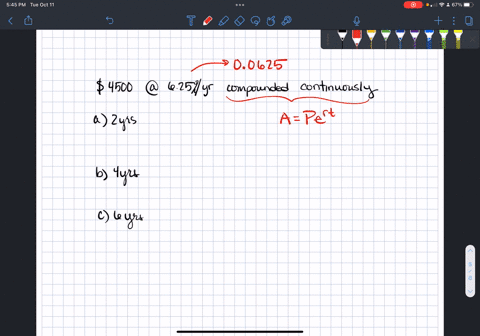 5:45 PM Tue Oct 11
52%
0.0625
$4500 @ 6.25%/yr compounded continuously
a) 2yrs
A = Pe^rt
b) 4yrs
c) 6yrs